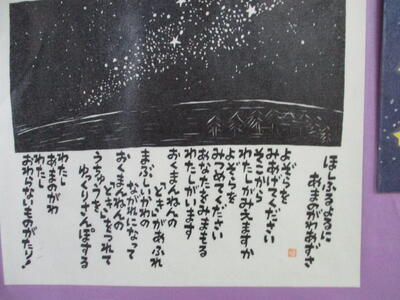 ほしふるよるに
あまのがわあずさ
よぞらを
みあげてください
そこから
わたしがみえますか
よぞらを
みつめてください
あなたをみまもる
わたしがいます
おくまんねんの
ときがあふれ
まぶしいかわの
ながれになって
おくまんねんの
ときをつれて
うちゅうを
ゆっくりさんぽする
わたし
わたし
あまのがわ
おわらないものがたり!